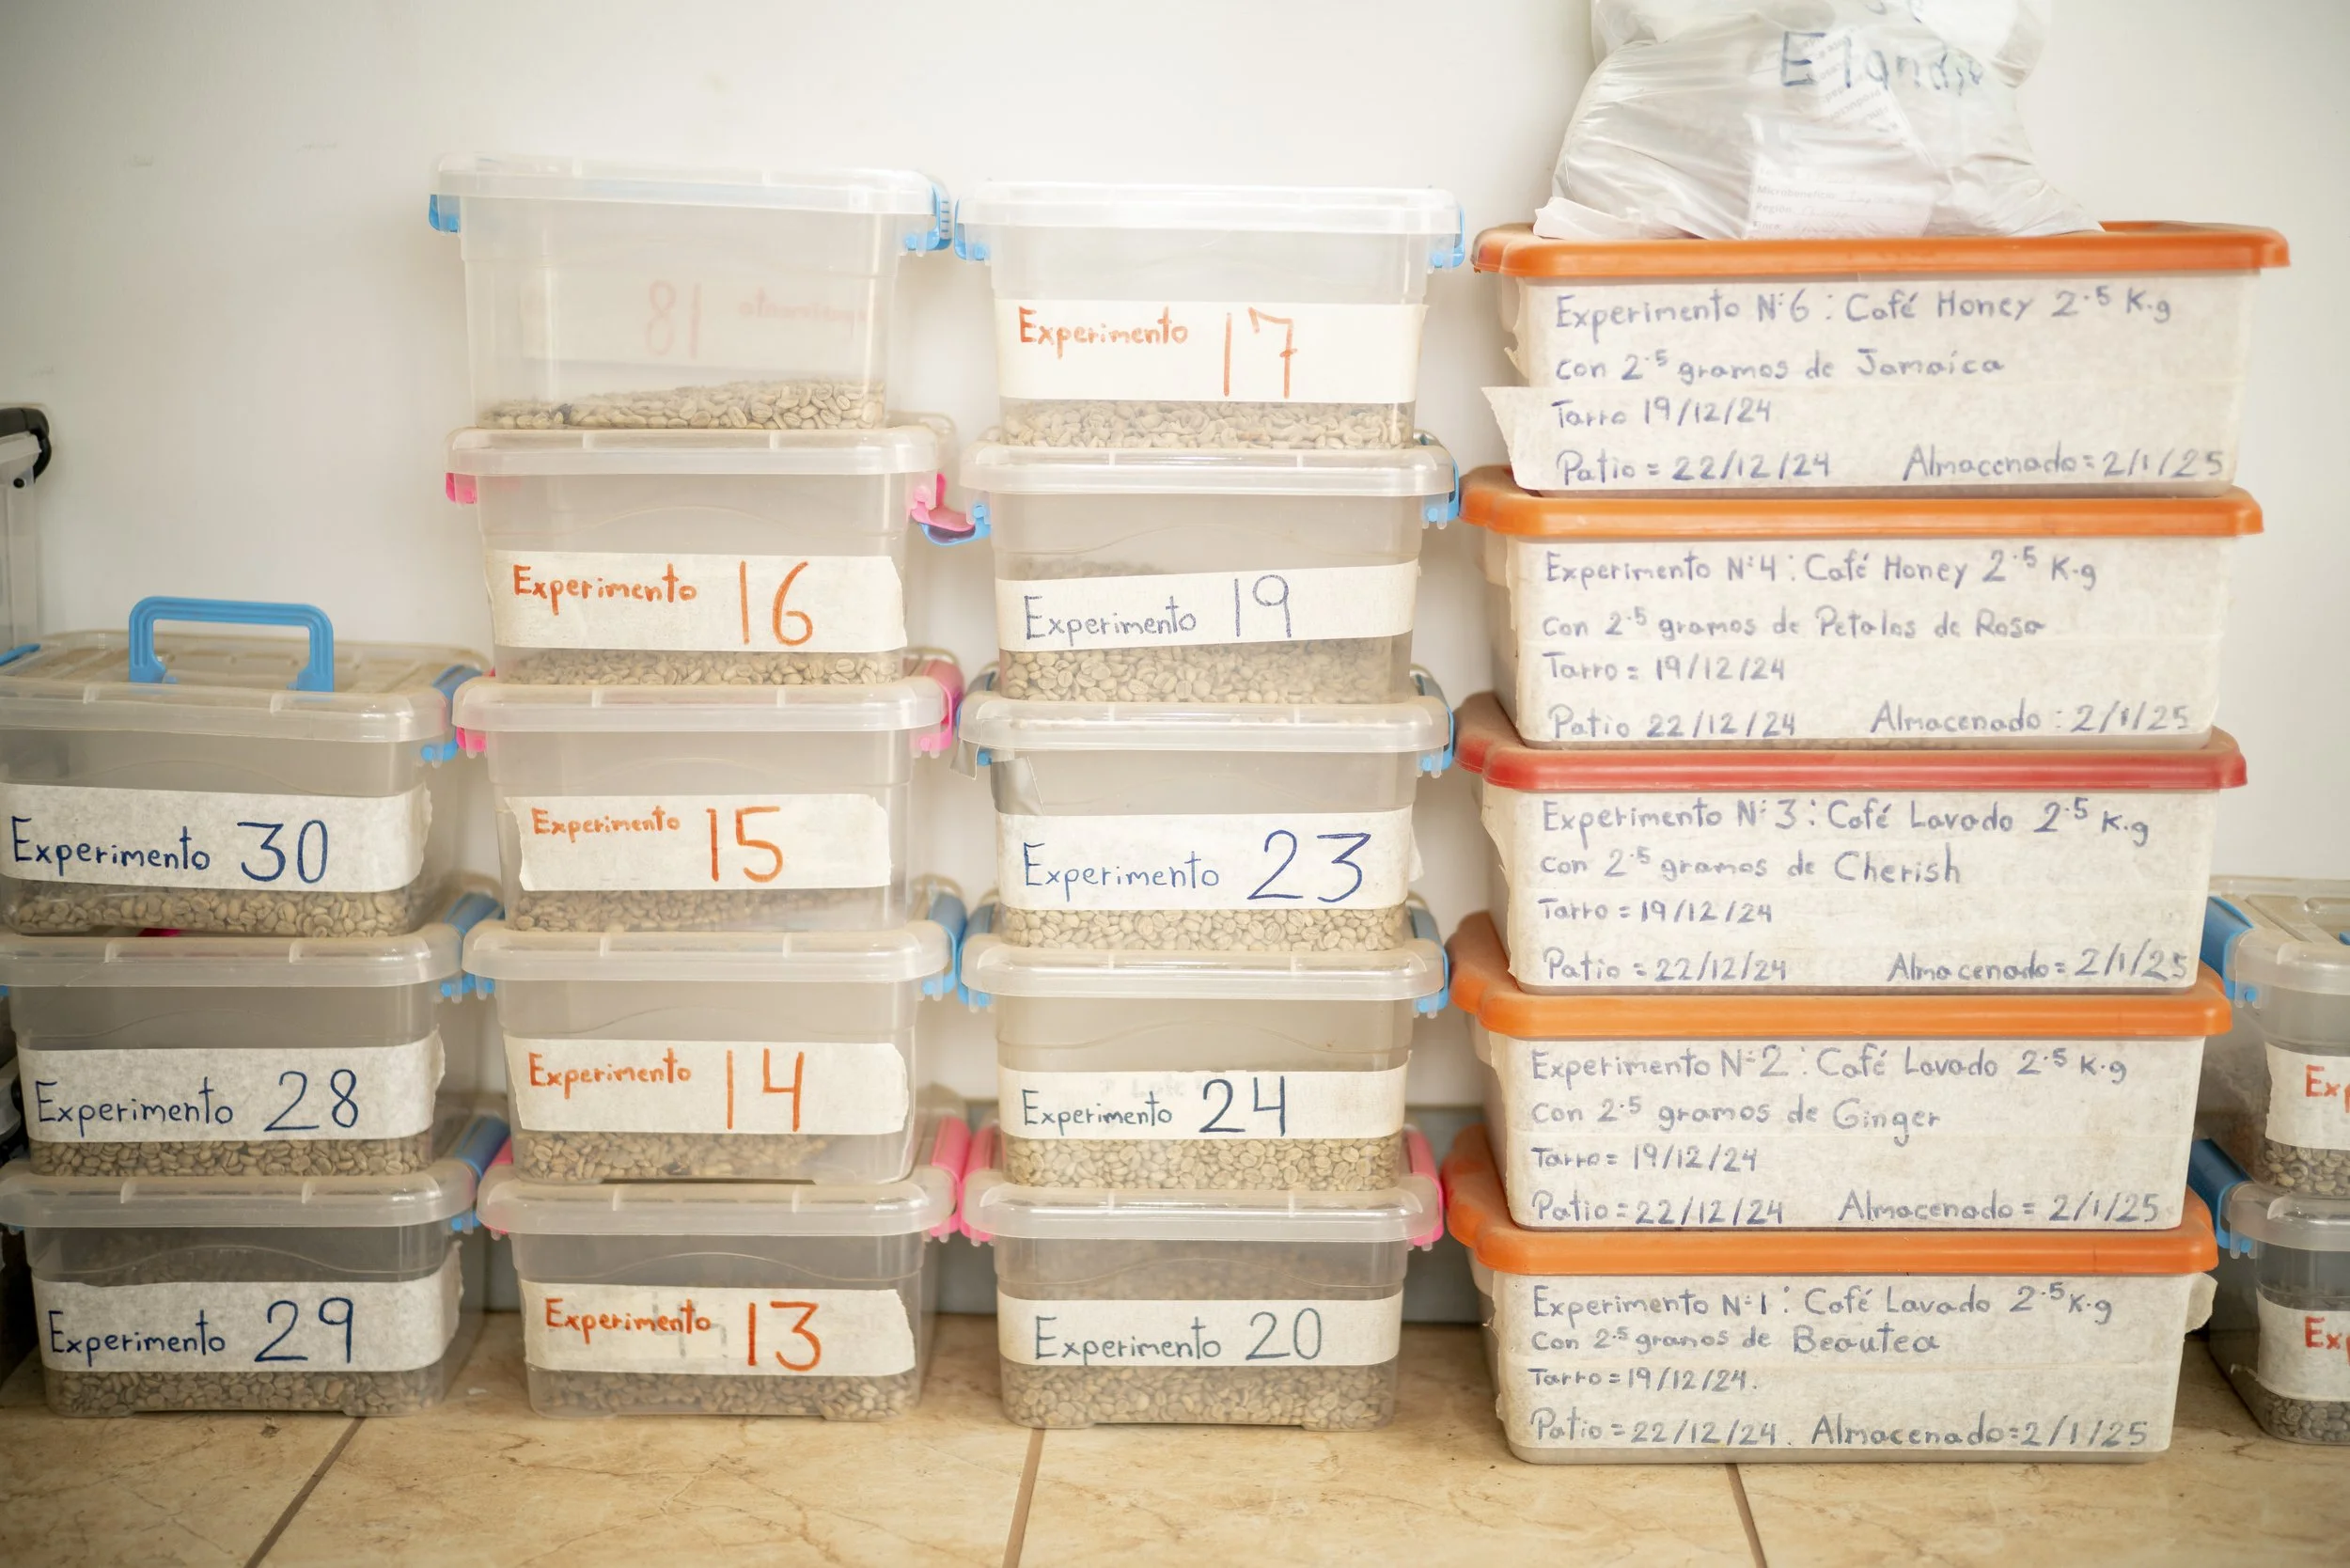 Experimento 30
Experimento 28
Experimento 29
Experimento
18
Experimento 16
Experimento 15
Experimento 14
Experimento 13
Experimento 17
Experimento 19
Experimento 23
Experimento 24
Experimento 20
Experimento Nº6 : Café Honey 2.5 K.g
con 2.5 gramos de Jamaica
Tarro 19/12/24
Patio = 22/12/24 Almacenado = 2/1/25
Experimento Nº4 : Café Honey 2.5 K.g
con 2.5 gramos de Petalos de Rosa
Tarro = 19/12/24
Patio 22/12/24 Almacenado : 2/1/25
Experimento Nº3 : Café Lavado 2.5 K.g
con 2.5 gramos de Cherish
Tarro = 19/12/24
Patio = 22/12/24 Almacenado = 2/1/25
Experimento Nº2 : Café Lavado 2.5 K.g
con 2.5 gramos de Ginger
Tarro = 19/12/24
Patio = 22/12/24 Almacenado = 2/1/25
Experimento Nº1 : Café Lavado 2.5 K.g
Con 2.5 gramos de Beautea
Tarro = 19/12/24.
Patio = 22/12/24. Almacenado = 2/1/25
Exp
Exp